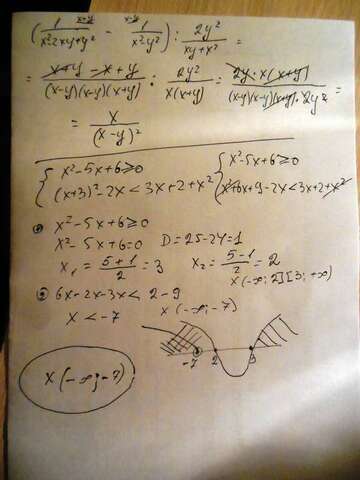 x+y x-y
(1/(x²-2xy+y²) - 1/(x²-y²)) : 2y²/(xy+x²) =
= (x+y-x+y)/((x-y)(x-y)(x+y)) : 2y²/(x(x+y)) = 2y·x(x+y)/((x-y)(x-y)(x+y)·2y²) =
= x/(x-y)²
{ x²-5x+6≥0 { x²-5x+6≥0
(x+3)²-2x<3x+2+x² x²+6x+9-2x<3x+2+x²
① x²-5x+6≥0
x²-5x+6=0 D=25-24=1
x₁=(5+1)/2=3 x₂=(5-1)/2=2
x(-∞;2][3;+∞)
② 6x-2x-3x<2-9
x<-7 x(-∞;-7)
-7 2 3
x(-∞;-7)